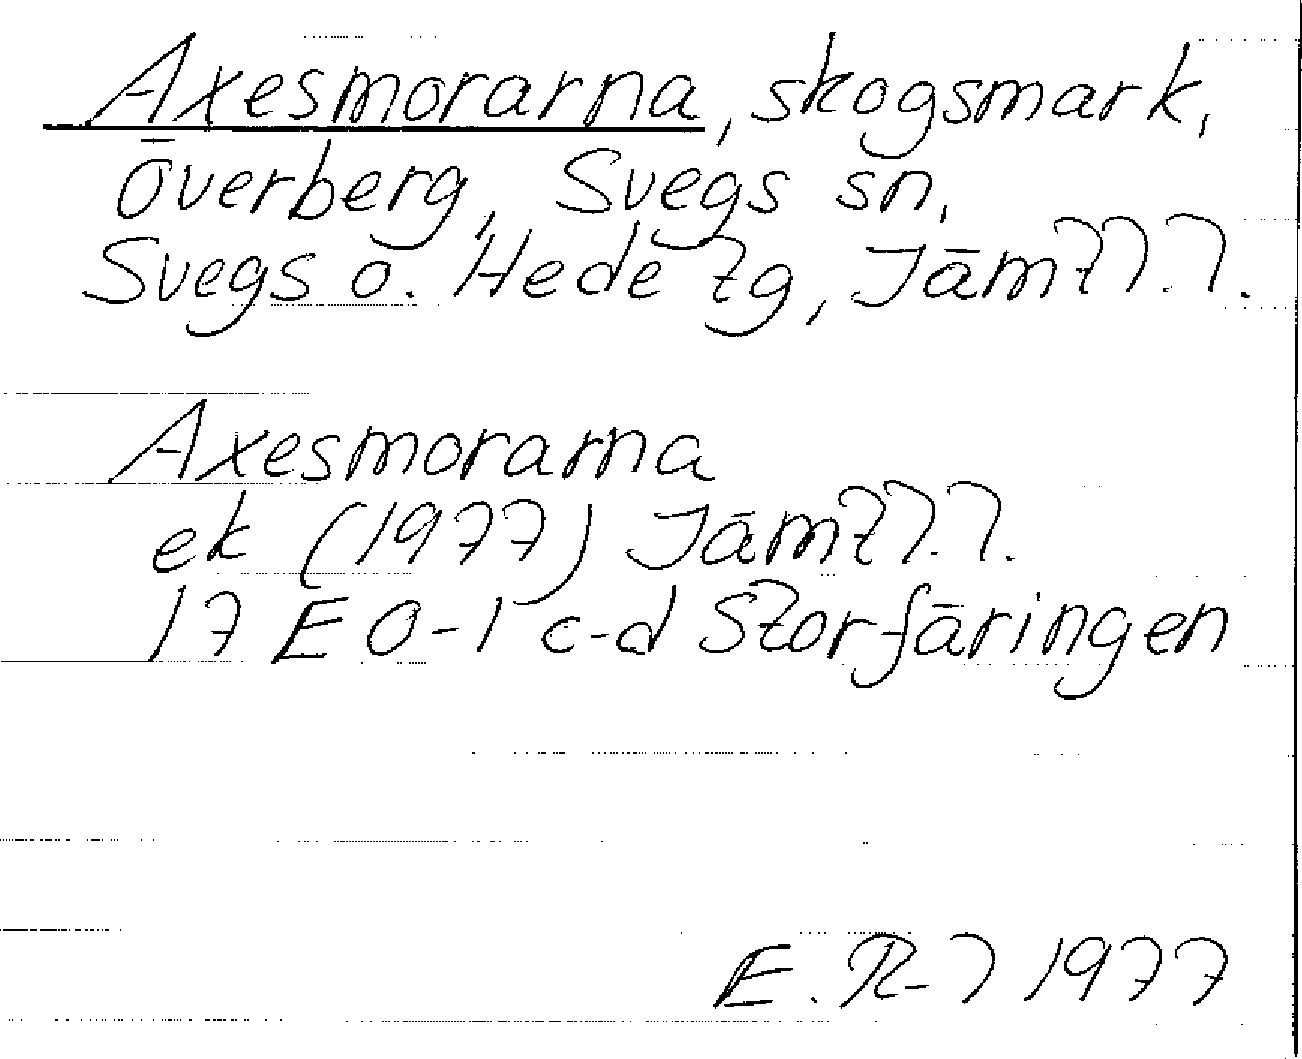 Axesmorarna, skogsmark,
Överberg, Svegs sn,
Svegs o. Hede tg, Jämtl.l.
Axesmorarna
ek (1977) Jämtl.l.
17 E 0-1 c-d Storfäringen
E. R-l 1977